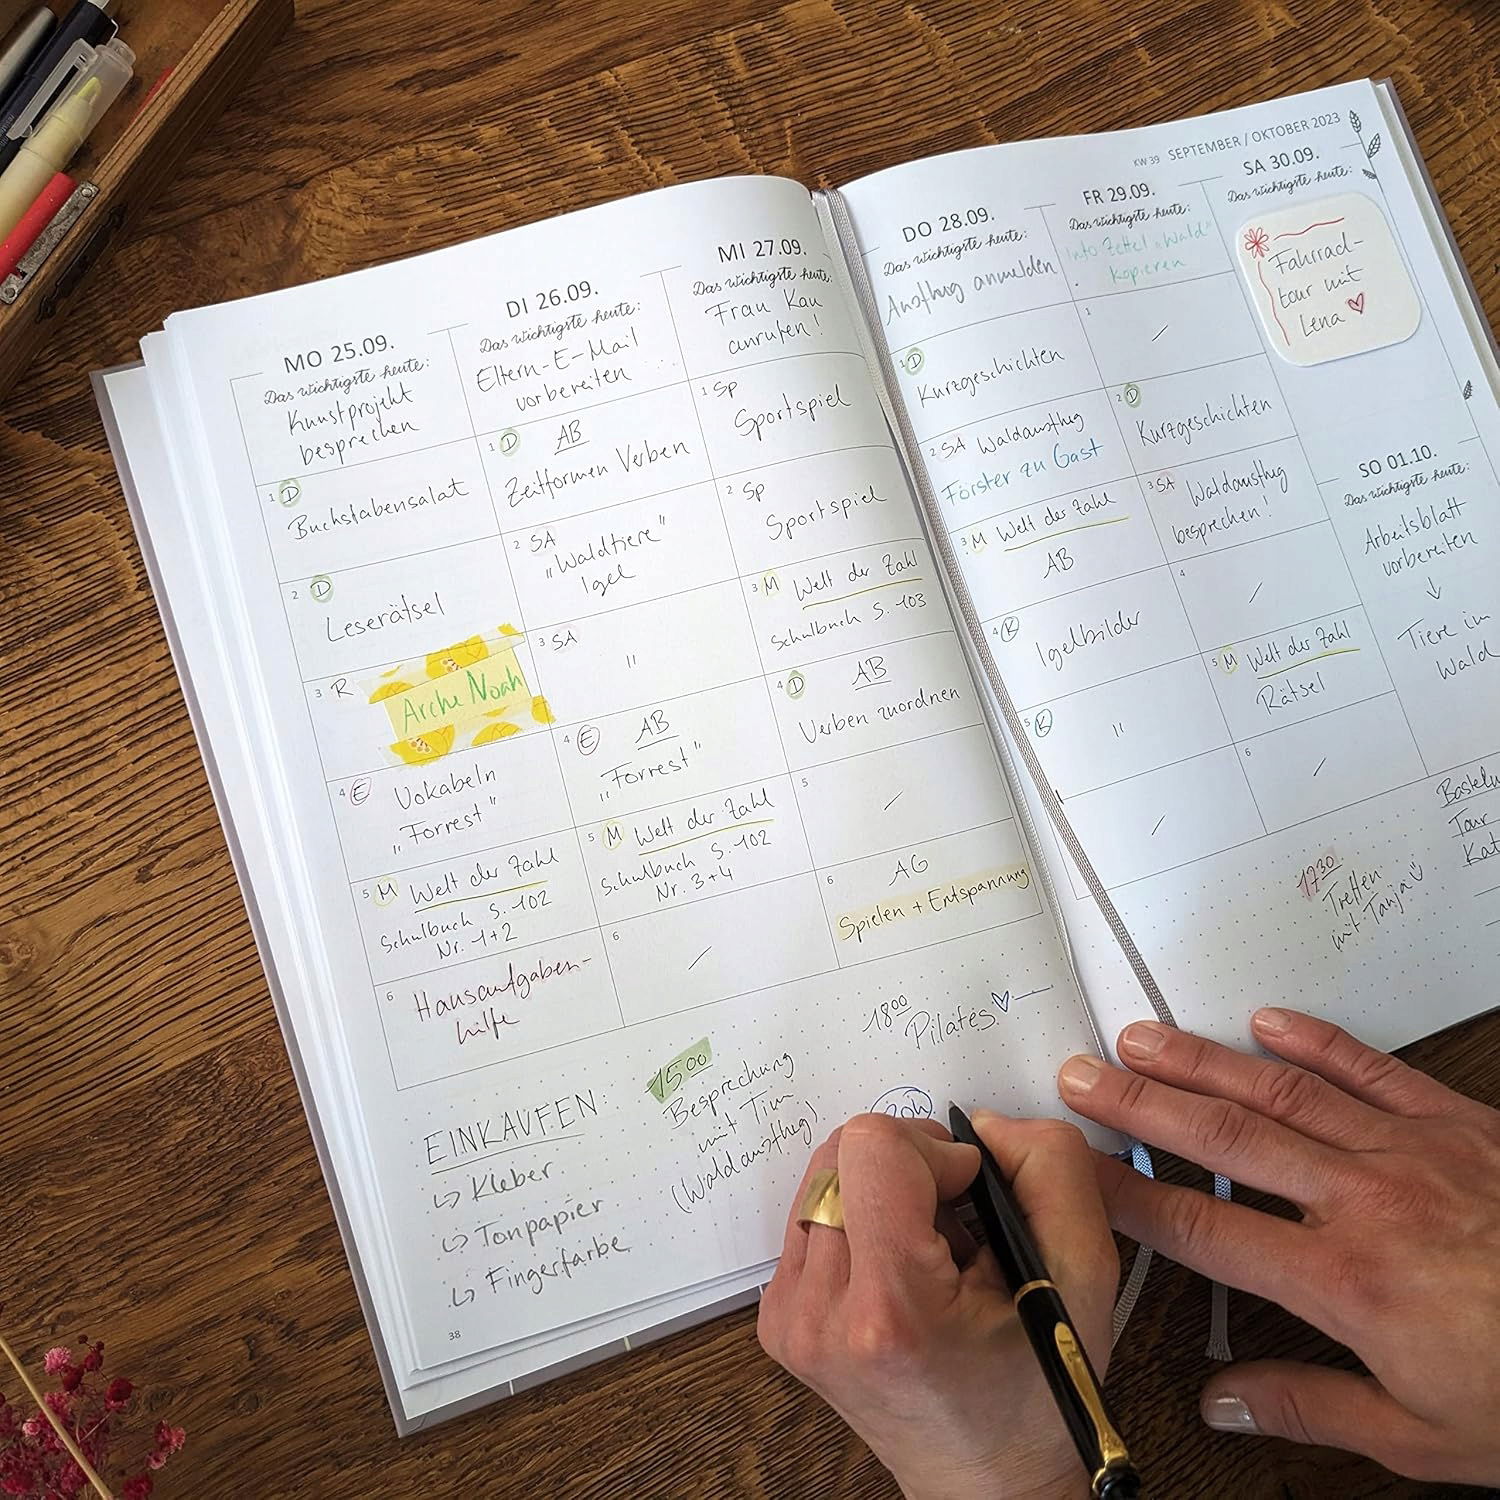 KW 39 SEPTEMBER / OKTOBER 2023
MO 25.09.
Das wichtigste heute:
Kunstprojekt
besprechen
1 D
Buchstabensalat
2 D
Leserätsel
3 R
Arche Noah
4 E Vokabeln
„Forrest"
5 M Welt der Zahl
Schulbuch S. 102
Nr. 1+2
6 Hausaufgaben-
hilfe
DI 26.09.
Das wichtigste heute:
Eltern-E-Mail
vorbereiten
1 D AB
Zeitformen Verben
2 SA
„Waldtiere"
Igel
3 SA
"
4 E AB
„Forrest"
5 M Welt der Zahl
Schulbuch S. 102
Nr. 3+4
6 /
MI 27.09.
Das wichtigste heute:
Frau Kau
anrufen!
1 Sp
Sportspiel
2 Sp
Sportspiel
3 M Welt der Zahl
Schulbuch S. 103
4 D AB
Verben zuordnen
5 /
6 AG
Spielen + Entspannung
EINKAUFEN:
↳ Kleber
↳ Tonpapier
↳ Fingerfarbe
1500
Besprechung
mit Tim
(Waldausflug)
1800
Pilates ♡
38
DO 28.09.
Das wichtigste heute:
Ausflug anmelden
1 D
Kurzgeschichten
2 SA Waldausflug
Förster zu Gast
3 M Welt der Zahl
AB
4 K
Igelbilder
5 K
"
/
FR 29.09.
Das wichtigste heute:
Info-Zettel „Wald"
kopieren
1 /
2 D
Kurzgeschichten
3 SA Waldausflug
besprechen!
4 /
5 M Welt der Zahl
Rätsel
6 /
1730
Treffen
mit Tanja
SA 30.09.
Das wichtigste heute:
Fahrrad-
tour mit
Lena ♡
SO 01.10.
Das wichtigste heute:
Arbeitsblatt
vorbereiten
↓
Tiere im
Wald